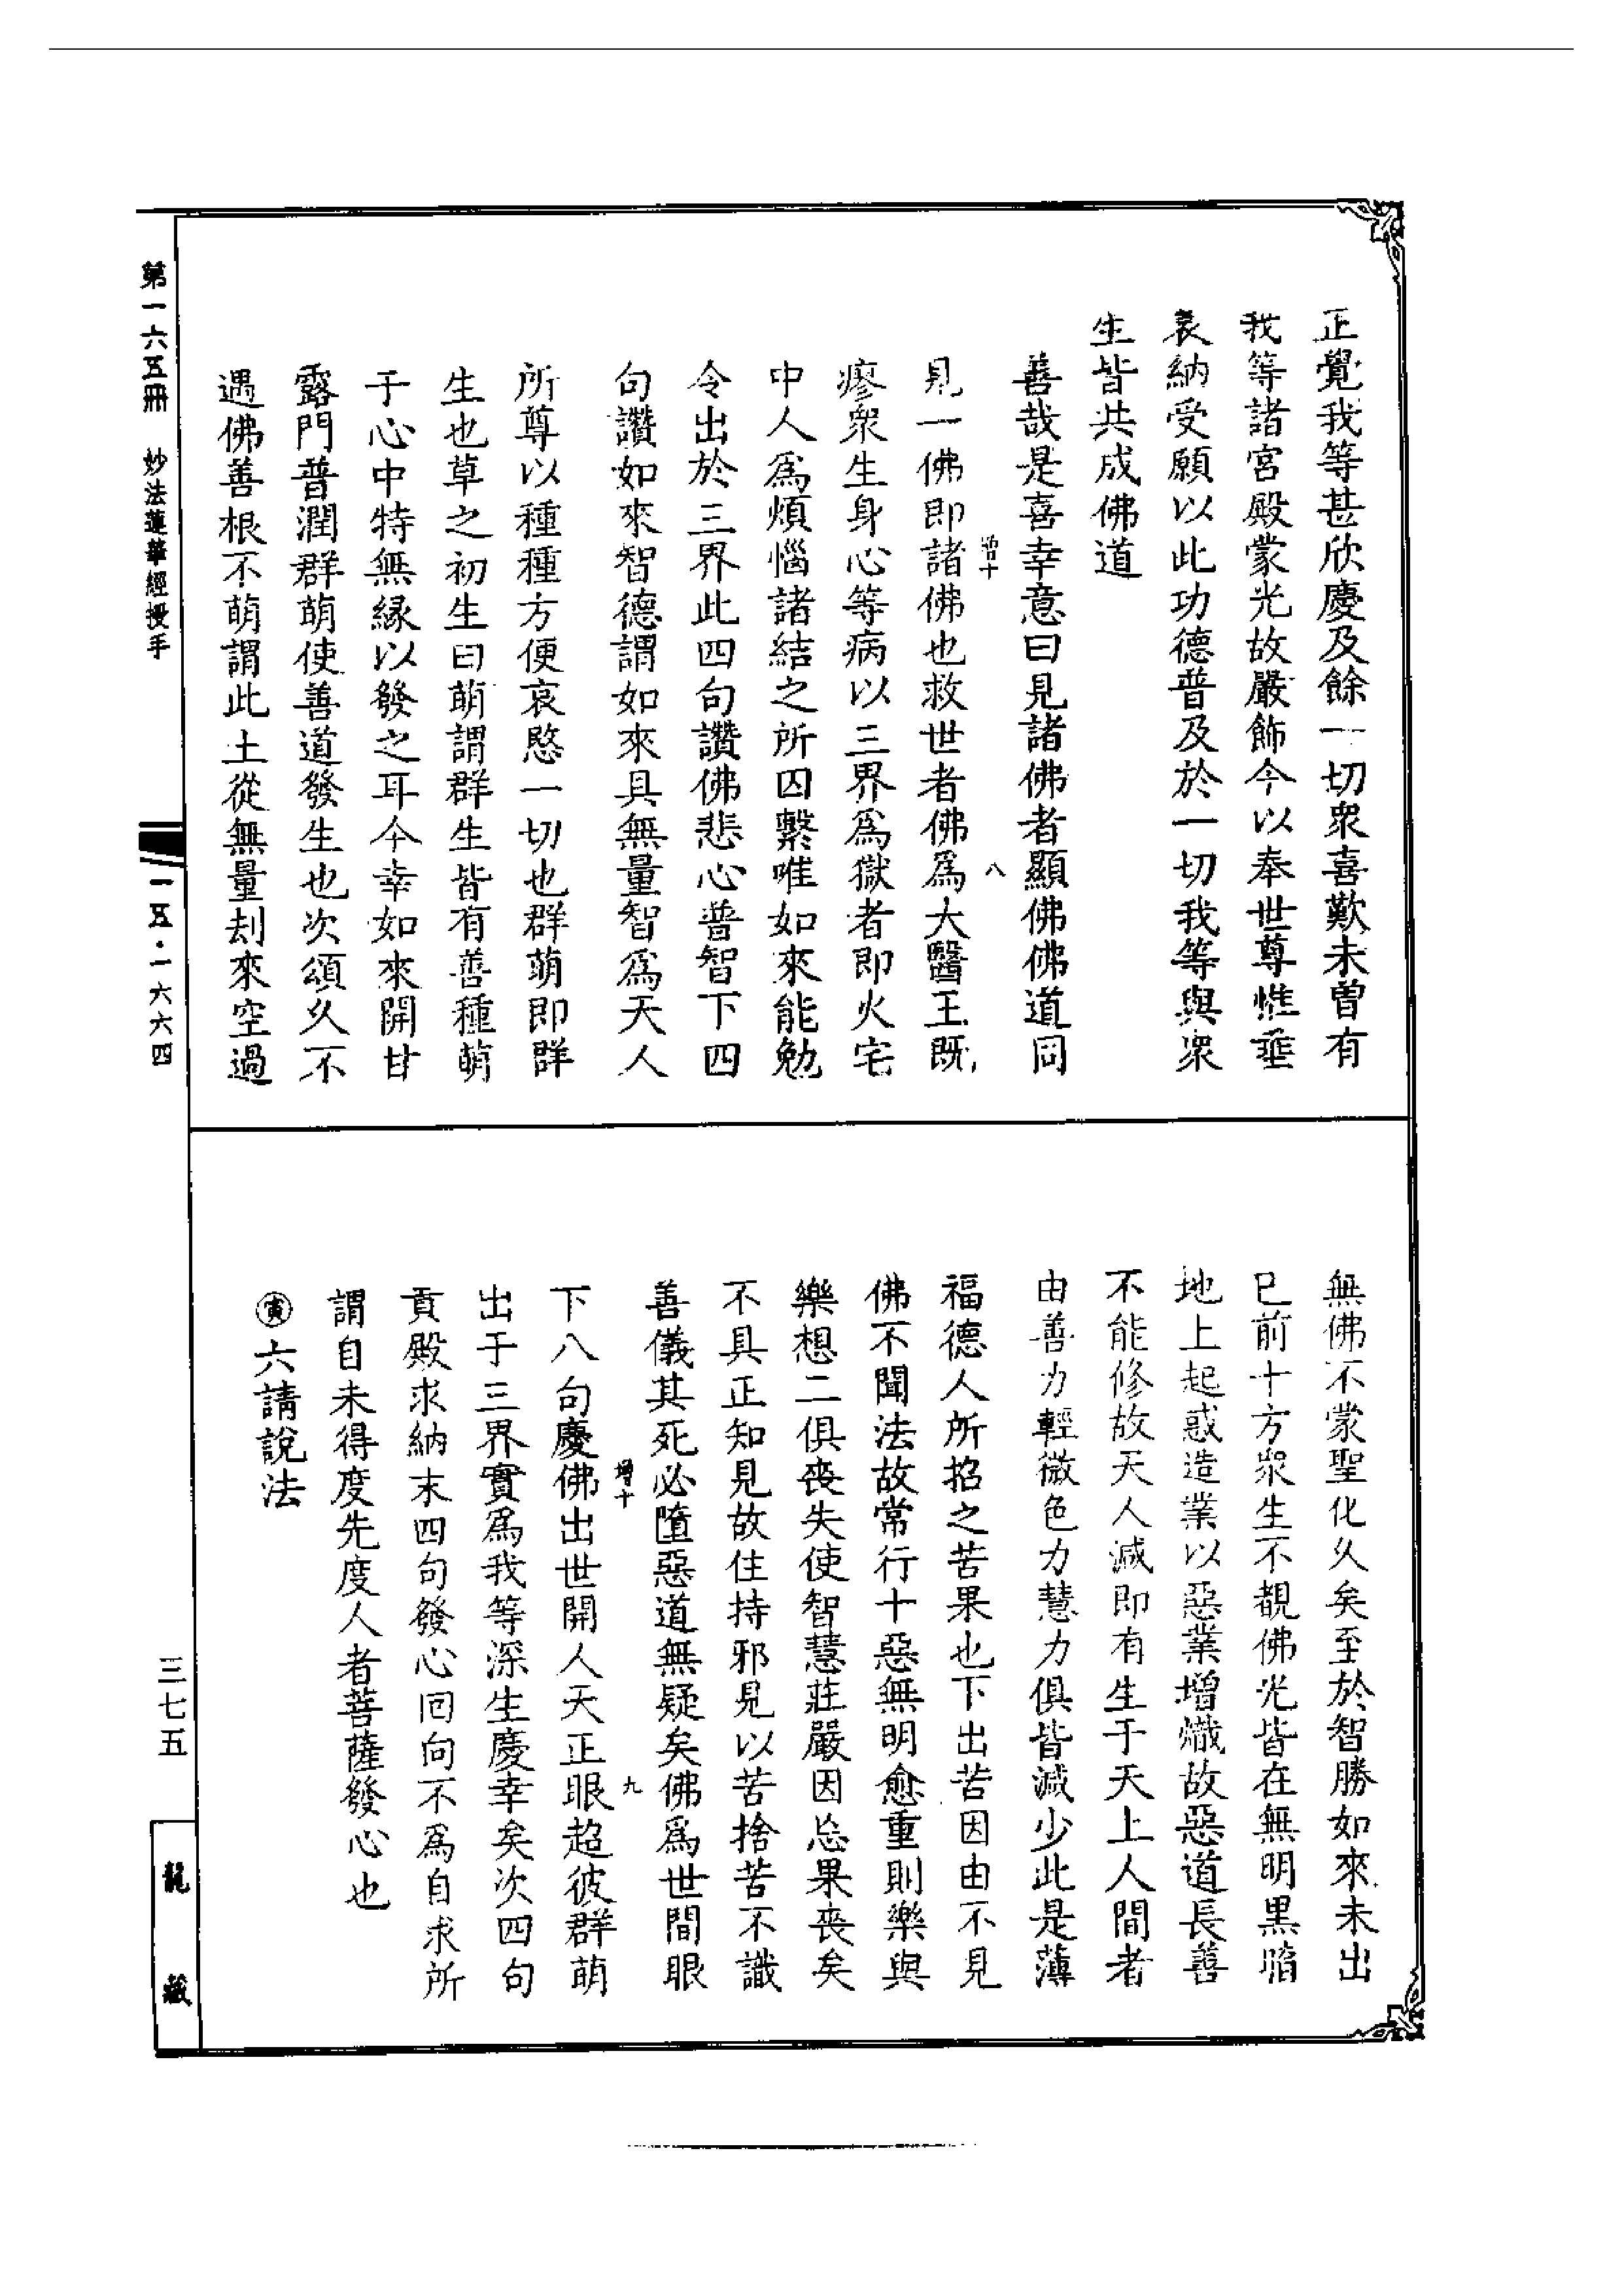 正覺我等甚欣慶及餘一切衆喜歎未曾有
我等諸宮殿蒙光故嚴飾今以奉世尊惟垂
哀納受願以此功德普及於一切我等與衆
生皆共成佛道
善哉是喜幸意曰見諸佛者顯佛佛道同
見一佛即諸佛也救世者佛爲大醫王既
增十
八
瘳衆生身心等病以三界爲獄者即火宅
中人爲煩惱諸結之所囚繫唯如來能勉
令出於三界此四句讚佛悲心普智下四
句讚如來智德謂如來具無量智爲天人
所尊以種種方便哀愍一切也群萌即群
生也草之初生曰萌謂群生皆有善種萌
于心中特無緣以發之耳今幸如來開甘
露門普潤群萌使善道發生也次頌久不
遇佛善根不萌謂此土從無量刦來空過
無佛不蒙聖化久矣至於智勝如來未出
已前十方衆生不覩佛光皆在無明黑暗
地上起惑造業以惡業增熾故惡道長善
不能修故天人減即有生于天上人間者
由善力輕微色力慧力俱皆減少此是薄
福德人所招之苦果也下出苦因由不見
佛不聞法故常行十惡無明愈重則樂與
樂想二俱喪失使智慧莊嚴因忘果喪矣
不具正知見故住持邪見以苦捨苦不識
善儀其死必墮惡道無疑矣佛爲世間眼
增十
九
下八句慶佛出世開人天正眼超彼群萌
出于三界實爲我等深生慶幸矣次四句
貢殿求納末四句發心回向不爲自求所
謂自未得度先度人者菩薩發心也
寅六請說法
第一六五冊 妙法蓮華經授手
一五·一六六四
三七五
龍藏